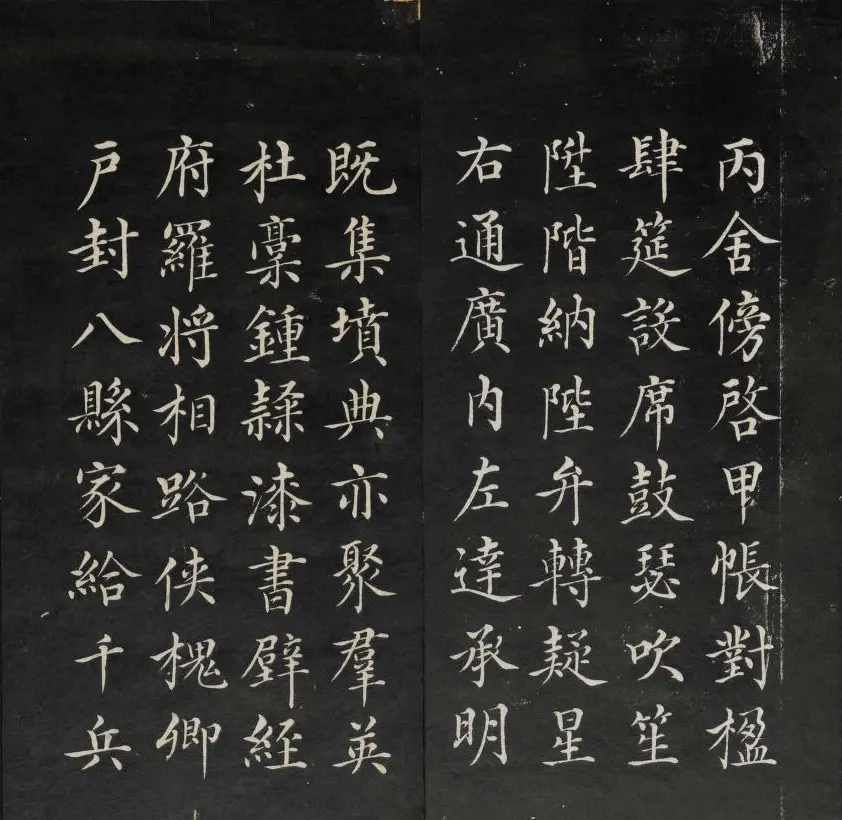 丙舍傍啓甲帳對楹
肆筵設席鼓瑟吹笙
陞階納陛弁轉疑星
右通廣内左達承明
既集墳典亦聚羣英
杜稾鍾隸漆書壁經
府羅將相路俠槐卿
戶封八縣家給千兵